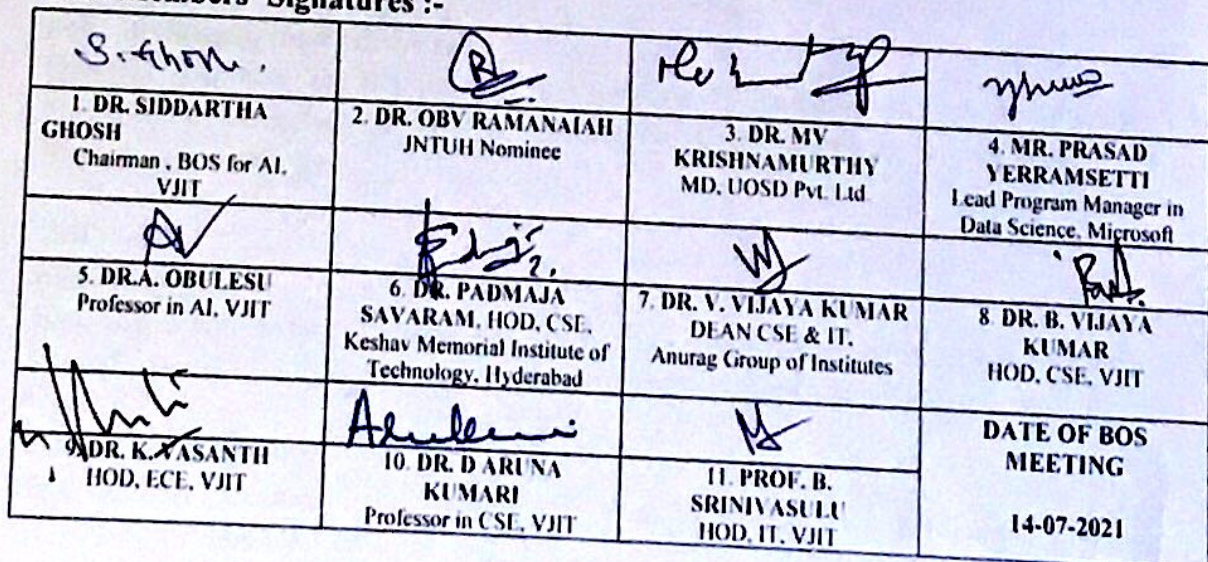 Signatures :-
S. Ghosh.
1. DR. SIDDARTHA
GHOSH
Chairman , BOS for AI,
VJIT
2. DR. OBV RAMANAIAH
JNTUH Nominee
3. DR. MV
KRISHNAMURTHY
MD, UOSD Pvt. Ltd.
4. MR. PRASAD
YERRAMSETTI
Lead Program Manager in
Data Science, Microsoft
5. DR.A. OBULESU
Professor in AI, VJIT
6. DR. PADMAJA
SAVARAM, HOD, CSE,
Keshav Memorial Institute of
Technology, Hyderabad
7. DR. V. VIJAYA KUMAR
DEAN CSE & IT.
Anurag Group of Institutes
8. DR. B. VIJAYA
KUMAR
HOD, CSE, VJIT
9. DR. K.VASANTH
HOD, ECE, VJIT
10. DR. D ARUNA
KUMARI
Professor in CSE, VJIT
11. PROF. B.
SRINIVASULU
HOD, IT, VJIT
DATE OF BOS
MEETING
14-07-2021